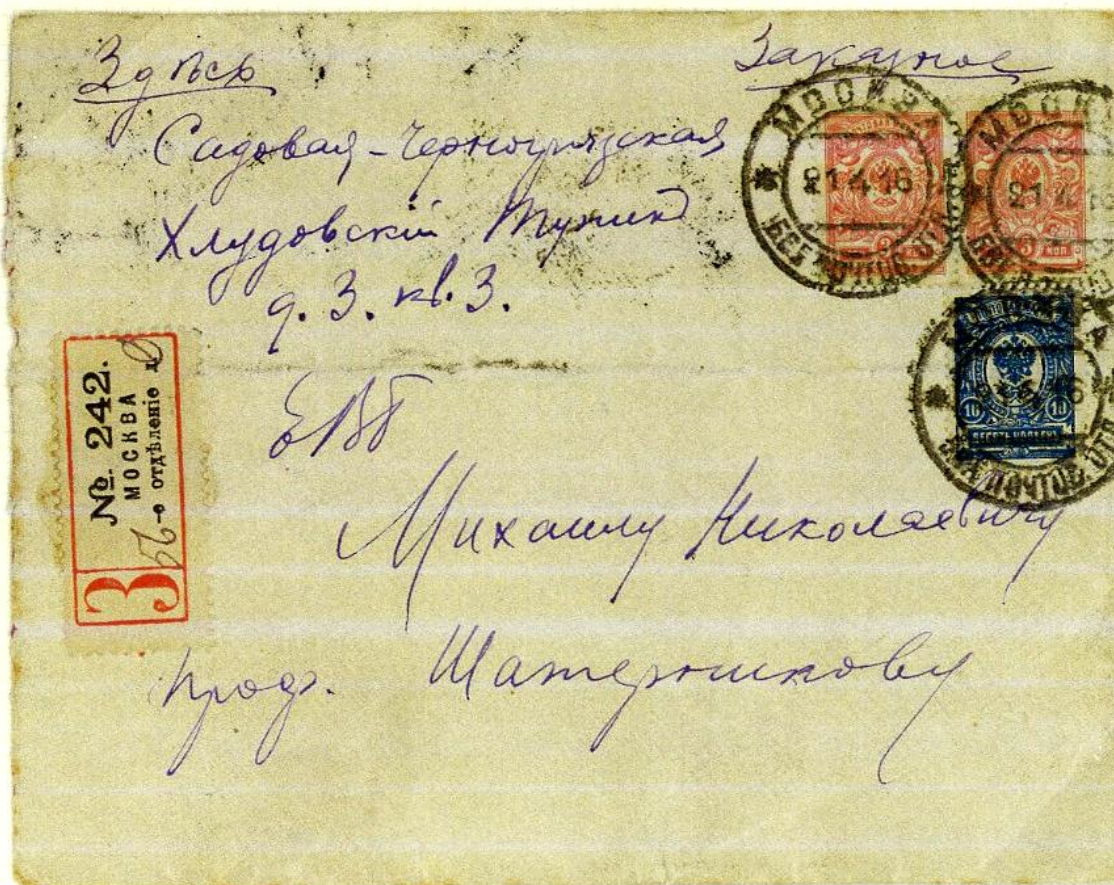 Здѣсь
Заказное
Садовая-Черногрязская
Хлудовскій тупик
д. 3. кв. 3.
ЕВБ
Михаилу Николаевичу
проф. Шатерникову
№ 242.
МОСКВА
56-е отдѣленіе
З
МОСКВА
21 4 16
МОСКВА
21 4 1
3 КОП
10 10
ДЕСЯТЬ КОПѢЕКЪ